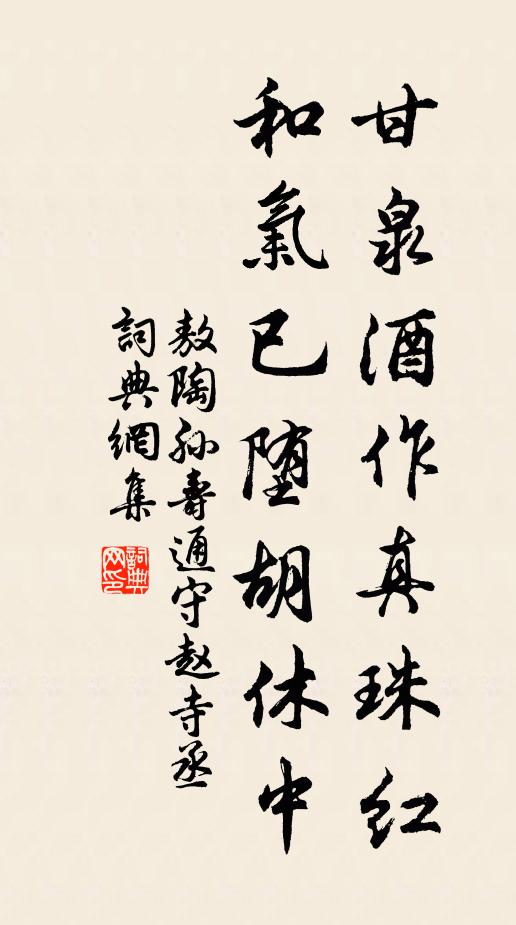 甘泉酒作真珠红
和氣已堕胡休中
敖陶孙壽通守赵寺丞
詞典網集
詞典网印